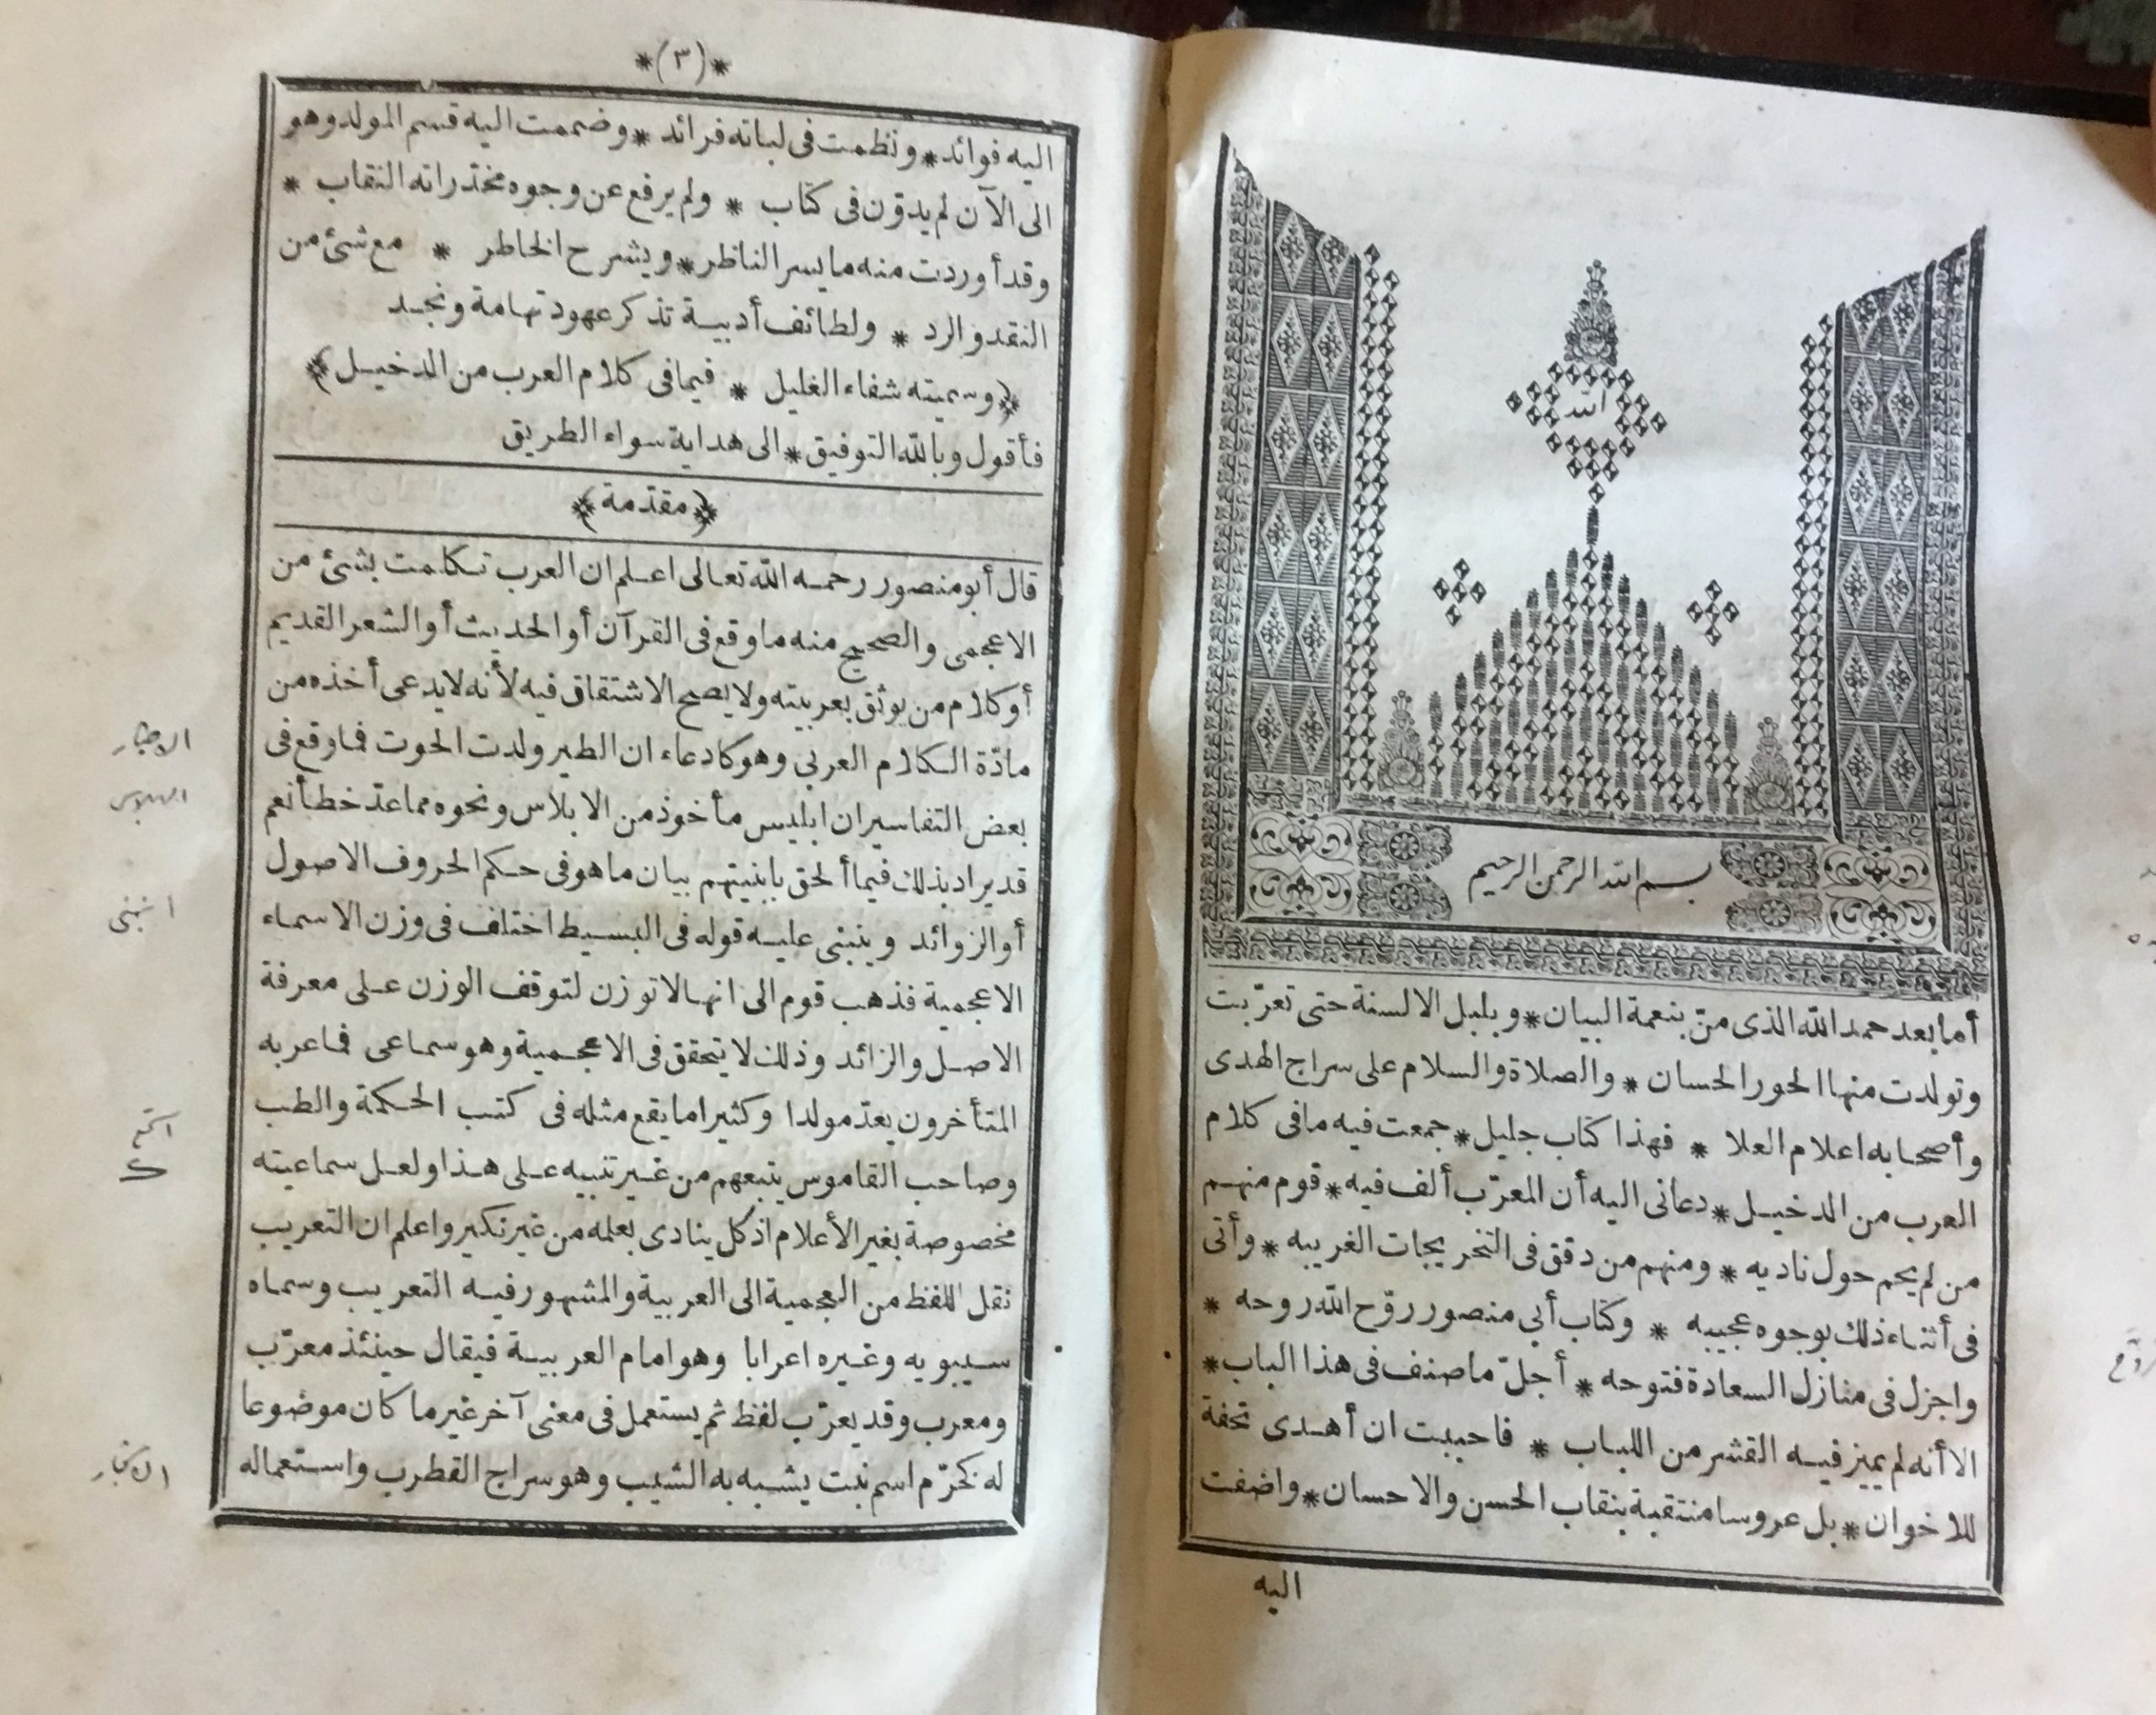 الله
بسم الله الرحمن الرحيم
أما بعد حمد الله الذى منّ بنعمة البيان * وبلبل الالسنة حتى تعرّبت
وتولدت منها الحور الحسان * والصلاة والسلام على سراج الهدى
وأصحابه اعلام العلا * فهذا كتاب جليل * جمعت فيه ما فى كلام
العرب من الدخيل * دعانى اليه أن المعرّب ألف فيه * قوم منهم
من لم يحم حول ناديه * ومنهم من دقق فى التخريجات الغريبه * وأتى
فى أثناء ذلك بوجوه عجيبه * وكتاب أبي منصور روّح الله روحه *
واجزل فى منازل السعادة فتوحه * أجلّ ما صنف فى هذا الباب *
الا أنه لم يميز فيه القشر من اللباب * فاحببت ان أهدى تحفة
للاخوان * بل عروسا منتقبة بنقاب الحسن والاحسان * واضفت
اليه
*(٣)*
اليه فوائد * ونظمت فى لباته فرائد * وضممت اليه قسم المولد وهو
الى الآن لم يدوّن فى كتاب * ولم يرفع عن وجوه مخدّراته النقاب *
وقد أوردت منه ما يسر الناظر * ويشرح الخاطر * مع شئ من
النقد والرد * ولطائف أدبية تذكر عهود تهامة ونجد
﴿وسميته شفاء الغليل * فيما فى كلام العرب من الدخيل﴾
فأقول وبالله التوفيق * الى هداية سواء الطريق
﴿مقدّمة﴾
قال أبو منصور رحمه الله تعالى اعلم ان العرب تكلمت بشئ من
الاعجمى والصحيح منه ما وقع فى القرآن أو الحديث أو الشعر القديم
أو كلام من يوثق بعربيته ولا يصح الاشتقاق فيه لأنه لا يدعى أخذه من
مادّة الكلام العربي وهو كادعاء ان الطير ولدت الحوت فما وقع فى
بعض التفاسير ان ابليس مأخوذ من الابلاس ونحوه مما عدّ خطأ نعم
قد يراد بذلك فيما ألحق بابنيتهم بيان ما هو فى حكم الحروف الاصول
أو الزوائد وينبنى عليه قوله فى البسيط اختلف فى وزن الاسماء
الاعجمية فذهب قوم الى انها لا توزن لتوقف الوزن على معرفة
الاصل والزائد وذلك لا يتحقق فى الاعجمية وهو سماعى فما عربه
المتأخرون يعدّ مولدا وكثيرا ما يقع مثله فى كتب الحكمة والطب
وصاحب القاموس يتبعهم من غير تنبيه على هذا ولعل سماعيته
مخصوصة بغير الأعلام اذ كل ينادى بعلمه من غير نكير واعلم ان التعريب
نقل اللفظ من العجمية الى العربية والمشهور فيه التعريب وسماه
سيبويه وغيره اعرابا وهو امام العربية فيقال حينئذ معرّب
ومعرب وقد يعرّب لفظ ثم يستعمل فى معنى آخر غير ما كان موضوعا
له كخرّم اسم نبت يشبه به الشيب وهو سراج القطرب واستعماله